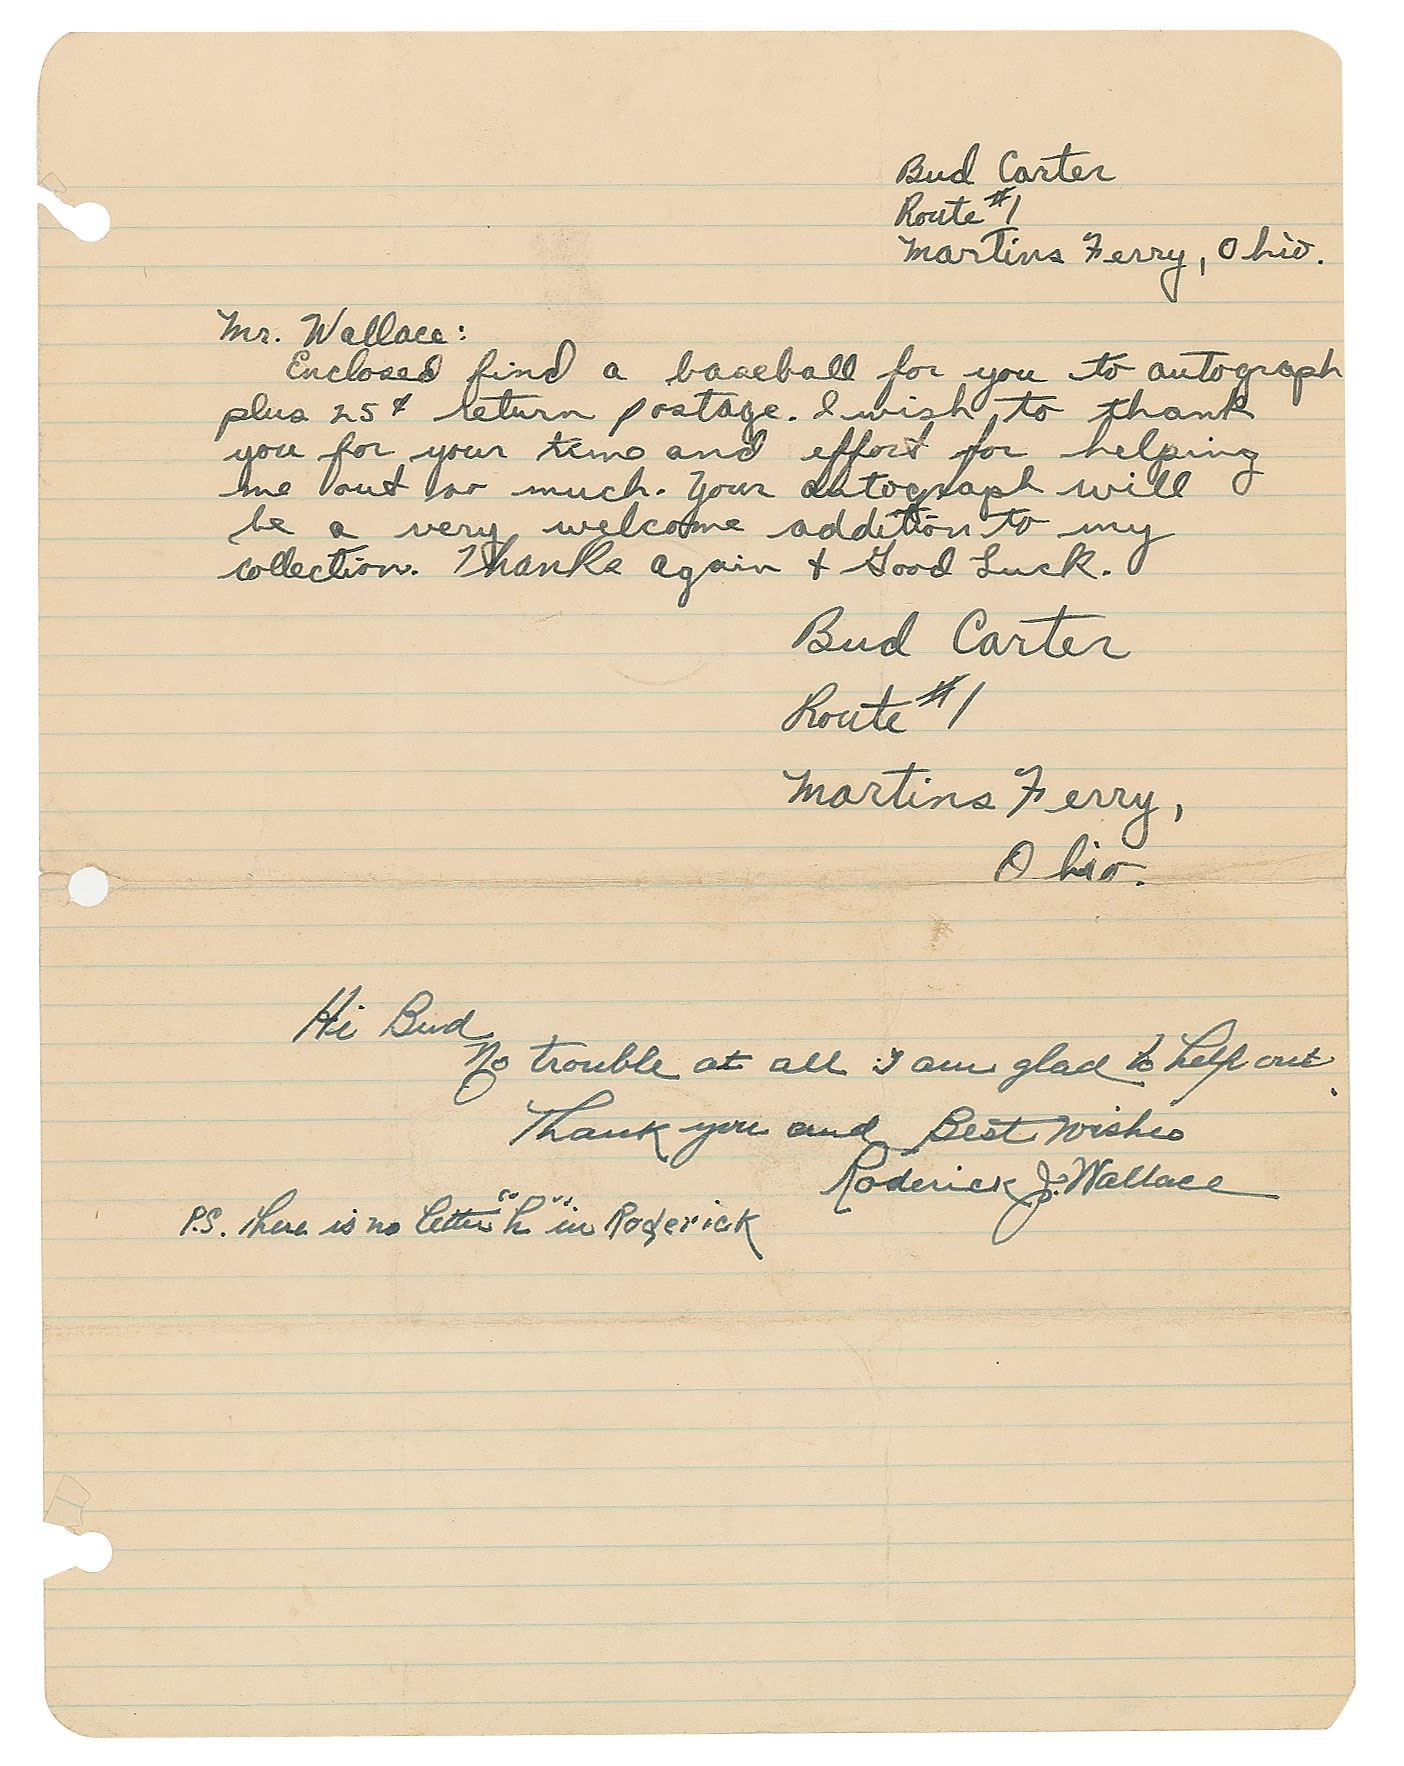 Bud Carter
Route #1
Martins Ferry, Ohio.
Mr. Wallace:
Enclosed find a baseball for you to autograph
plus 25¢ return postage. I wish to thank
you for your time and effort for helping
me out so much. Your autograph will
be a very welcome addition to my
collection. Thanks again + Good Luck.
Bud Carter
Route #1
Martins Ferry,
Ohio.
Hi Bud
No trouble at all I am glad to help out.
Thank you and Best Wishes
Roderick J. Wallace
P.S. there is no letter "h" in Roderick